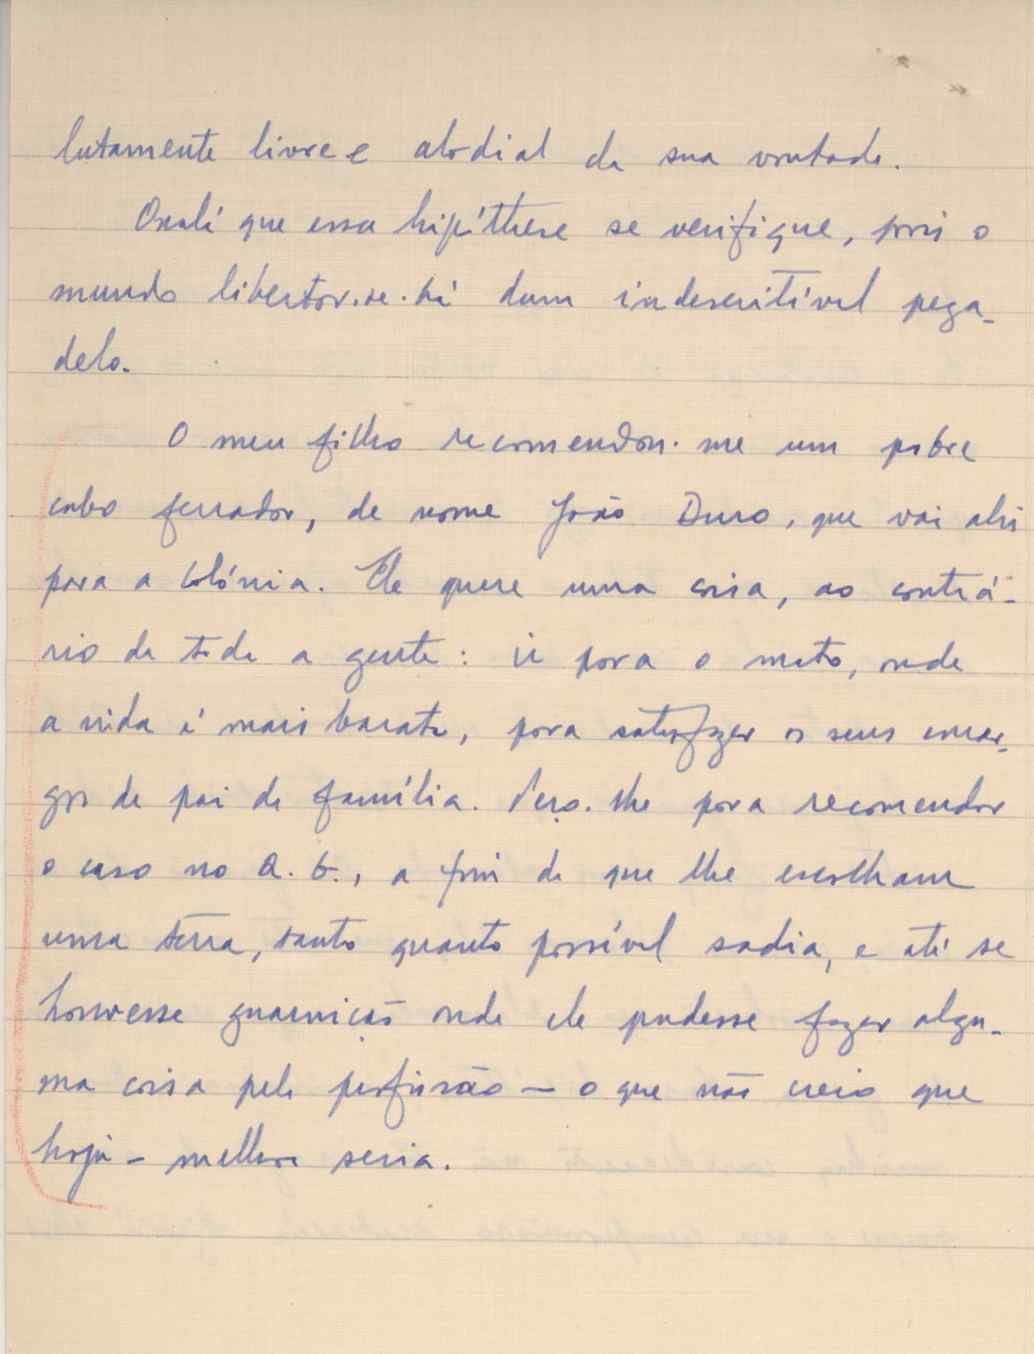 lutamente livre e alodial da sua vontade.
Oxalá que essa hipóthese se verifique, pois o
mundo libertar-se-há dum indescritível pega-
delo.
O meu filho recomendou-me um pobre
cabo ferrador, de nome João Duro, que vai ahi
para a Colónia. Ele quere uma coisa, ao contrá-
rio de toda a gente: ir para o mato, onde
a vida é mais barata, para satisfazer os seus encar-
gos de pai de família. Peço-lhe para recomendar
o caso no Q. G., a fim de que lhe escolham
uma terra, tanto quanto possível sadia, e até se
houvesse guarnição onde ele pudesse fazer algu-
ma coisa pela profissão — o que não creio que
haja — melhor seria.